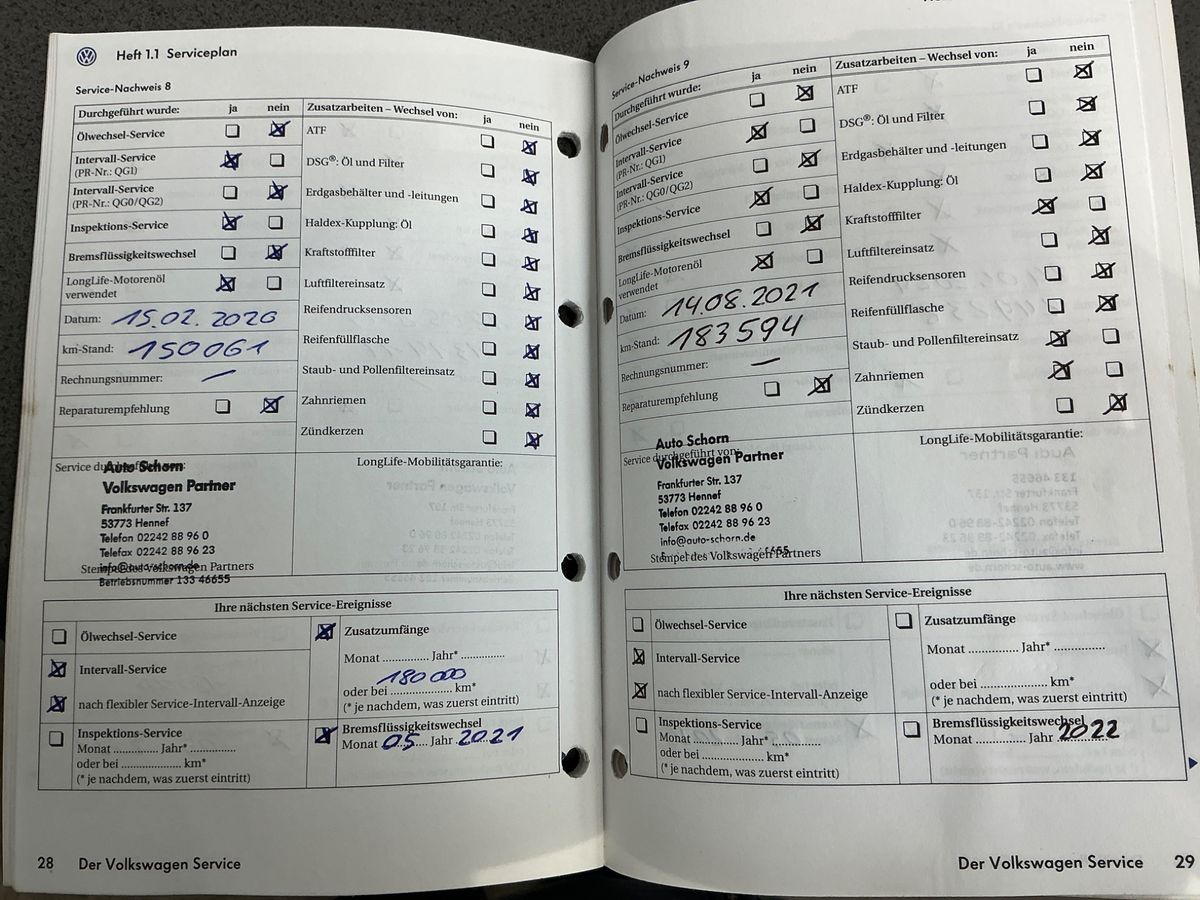 Heft 1.1 Serviceplan
Service-Nachweis 8
Durchgeführt wurde: ja nein
Ölwechsel-Service
Intervall-Service
(PR-Nr.: QG1)
Intervall-Service
(PR-Nr.: QG0/QG2)
Inspektions-Service
Bremsflüssigkeitswechsel
LongLife-Motorenöl
verwendet
Datum: 15.02.2020
km-Stand: 150061
Rechnungsnummer: –
Reparaturempfehlung
Zusatzarbeiten – Wechsel von: ja nein
ATF
DSG®: Öl und Filter
Erdgasbehälter und -leitungen
Haldex-Kupplung: Öl
Kraftstofffilter
Luftfiltereinsatz
Reifendrucksensoren
Reifenfüllflasche
Staub- und Pollenfiltereinsatz
Zahnriemen
Zündkerzen
Auto Schorn
Volkswagen Partner
Frankfurter Str. 137
53773 Hennef
Telefon 02242 88 96 0
Telefax 02242 88 96 23
Stempel des Volkswagen Partners
info@auto-schorn.de
Betriebsnummer 133 46655
LongLife-Mobilitätsgarantie:
Ihre nächsten Service-Ereignisse
Ölwechsel-Service
Intervall-Service
nach flexibler Service-Intervall-Anzeige
Inspektions-Service
Monat ............ Jahr* ............
oder bei .................... km*
(* je nachdem, was zuerst eintritt)
Zusatzumfänge
Monat ............ Jahr* ............
180 000
oder bei .................... km*
(* je nachdem, was zuerst eintritt)
Bremsflüssigkeitswechsel
Monat 05 Jahr 2021
28 Der Volkswagen Service
Service-Nachweis 9
Durchgeführt wurde: ja nein
Ölwechsel-Service
Intervall-Service
(PR-Nr.: QG1)
Intervall-Service
(PR-Nr.: QG0/QG2)
Inspektions-Service
Bremsflüssigkeitswechsel
LongLife-Motorenöl
verwendet
Datum: 14.08.2021
km-Stand: 183594
Rechnungsnummer: –
Reparaturempfehlung
Zusatzarbeiten – Wechsel von: ja nein
ATF
DSG®: Öl und Filter
Erdgasbehälter und -leitungen
Haldex-Kupplung: Öl
Kraftstofffilter
Luftfiltereinsatz
Reifendrucksensoren
Reifenfüllflasche
Staub- und Pollenfiltereinsatz
Zahnriemen
Zündkerzen
Auto Schorn
Service durchgeführt von:
Volkswagen Partner
Frankfurter Str. 137
53773 Hennef
Telefon 02242 88 96 0
Telefax 02242 88 96 23
info@auto-schorn.de
Stempel des Volkswagen Partners
LongLife-Mobilitätsgarantie:
Ihre nächsten Service-Ereignisse
Ölwechsel-Service
Intervall-Service
nach flexibler Service-Intervall-Anzeige
Inspektions-Service
Monat ............ Jahr* ............
oder bei .................... km*
(* je nachdem, was zuerst eintritt)
Zusatzumfänge
Monat ............ Jahr* ............
oder bei .................... km*
(* je nachdem, was zuerst eintritt)
Bremsflüssigkeitswechsel
Monat ............ Jahr 2022
Der Volkswagen Service 29